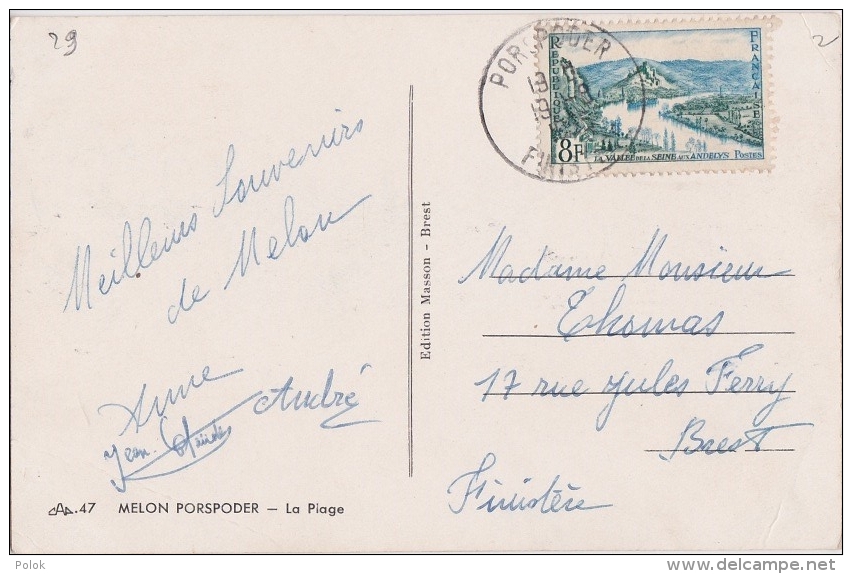 29
2
PORSPODER
FINIST
RÉPUBLIQUE
FRANÇAISE
8F LA VALLÉE DE LA SEINE AUX ANDELYS POSTES
Meilleurs Souvenirs
de Melon
Anne
André
Jean-Claude
Edition Masson - Brest
Madame Monsieur
Thomas
17 rue Jules Ferry
Brest
Finistère
.47 MELON PORSPODER — La Plage
Polok
www.delcampe.net